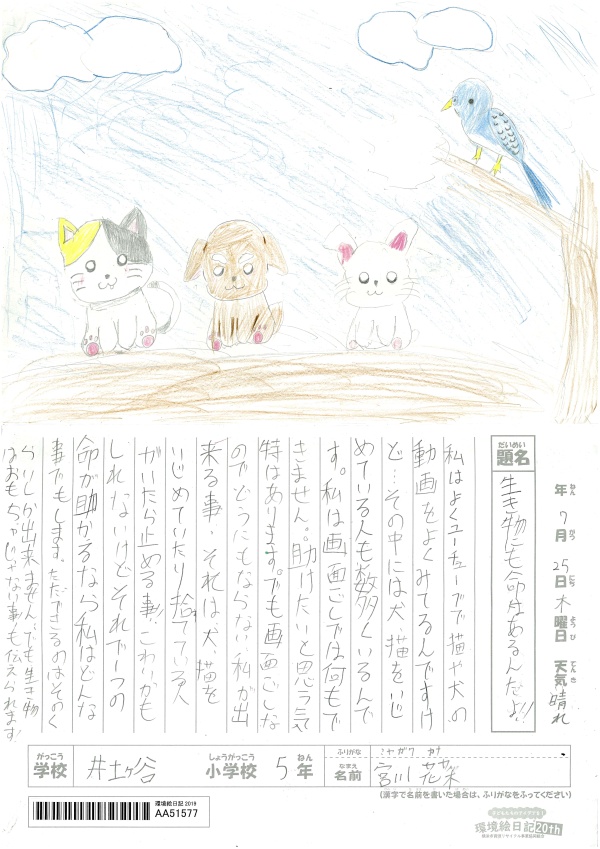 年 7月 25日 木曜日 天気 晴れ
ねん がつ にち ようび てんき
だいめい
題名
生き物にも命はあるんだよ!!
私はよくユーチューブで猫や犬の
動画をよくみてるんですけ
ど…その中には犬、猫をいじ
めている人も数多くいるんで
す。私は画面ごしでは何もで
きません。助けたいと思う気
持はあります。でも画面ごしな
のでどうにもならない私が出
来る事、それは犬、猫を
いじめていたり捨てている人
がいたら止める事!こわいかも
しれないけどそれで一つの
命が助かるなら私はどんな
事でもします。ただできるのはそのく
らいしか出来ません。でも生き物
はおもちゃじゃない事も伝えられます!
がっこう しょうがっこう ねん
学校 井土ヶ谷 小学校 5年
ふりがな ミヤガワ
なまえ
名前 宮川 花菜
(漢字で名前を書いた場合は、ふりがなをふってください)
環境絵日記2019
AA51577
環境絵日記20th